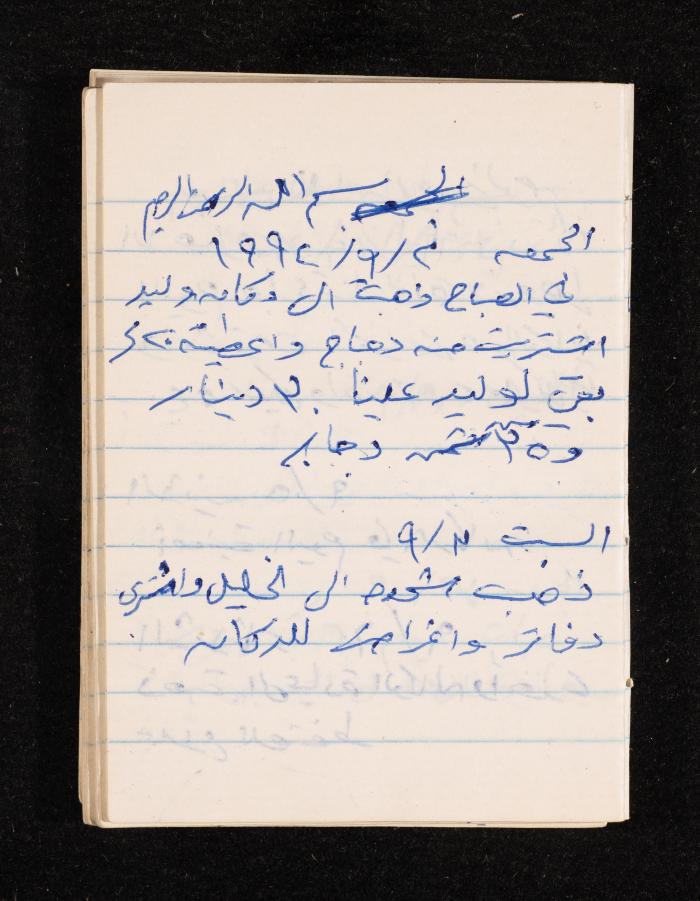 بسم الله الرحمن الرحيم
الجمعه ٢/٩/١٩٩٤
في الصباح ذهبت الى دكانه وليد
اشتريت منه دجاج واعطيته ٢٠
بقي لوليد علينا ٣٠ دينار
و ٣٥ ثمن دجاج
السبت ٣/٩
ذهب الى الخليل واشترى
دفاتر واغراض للدكانه